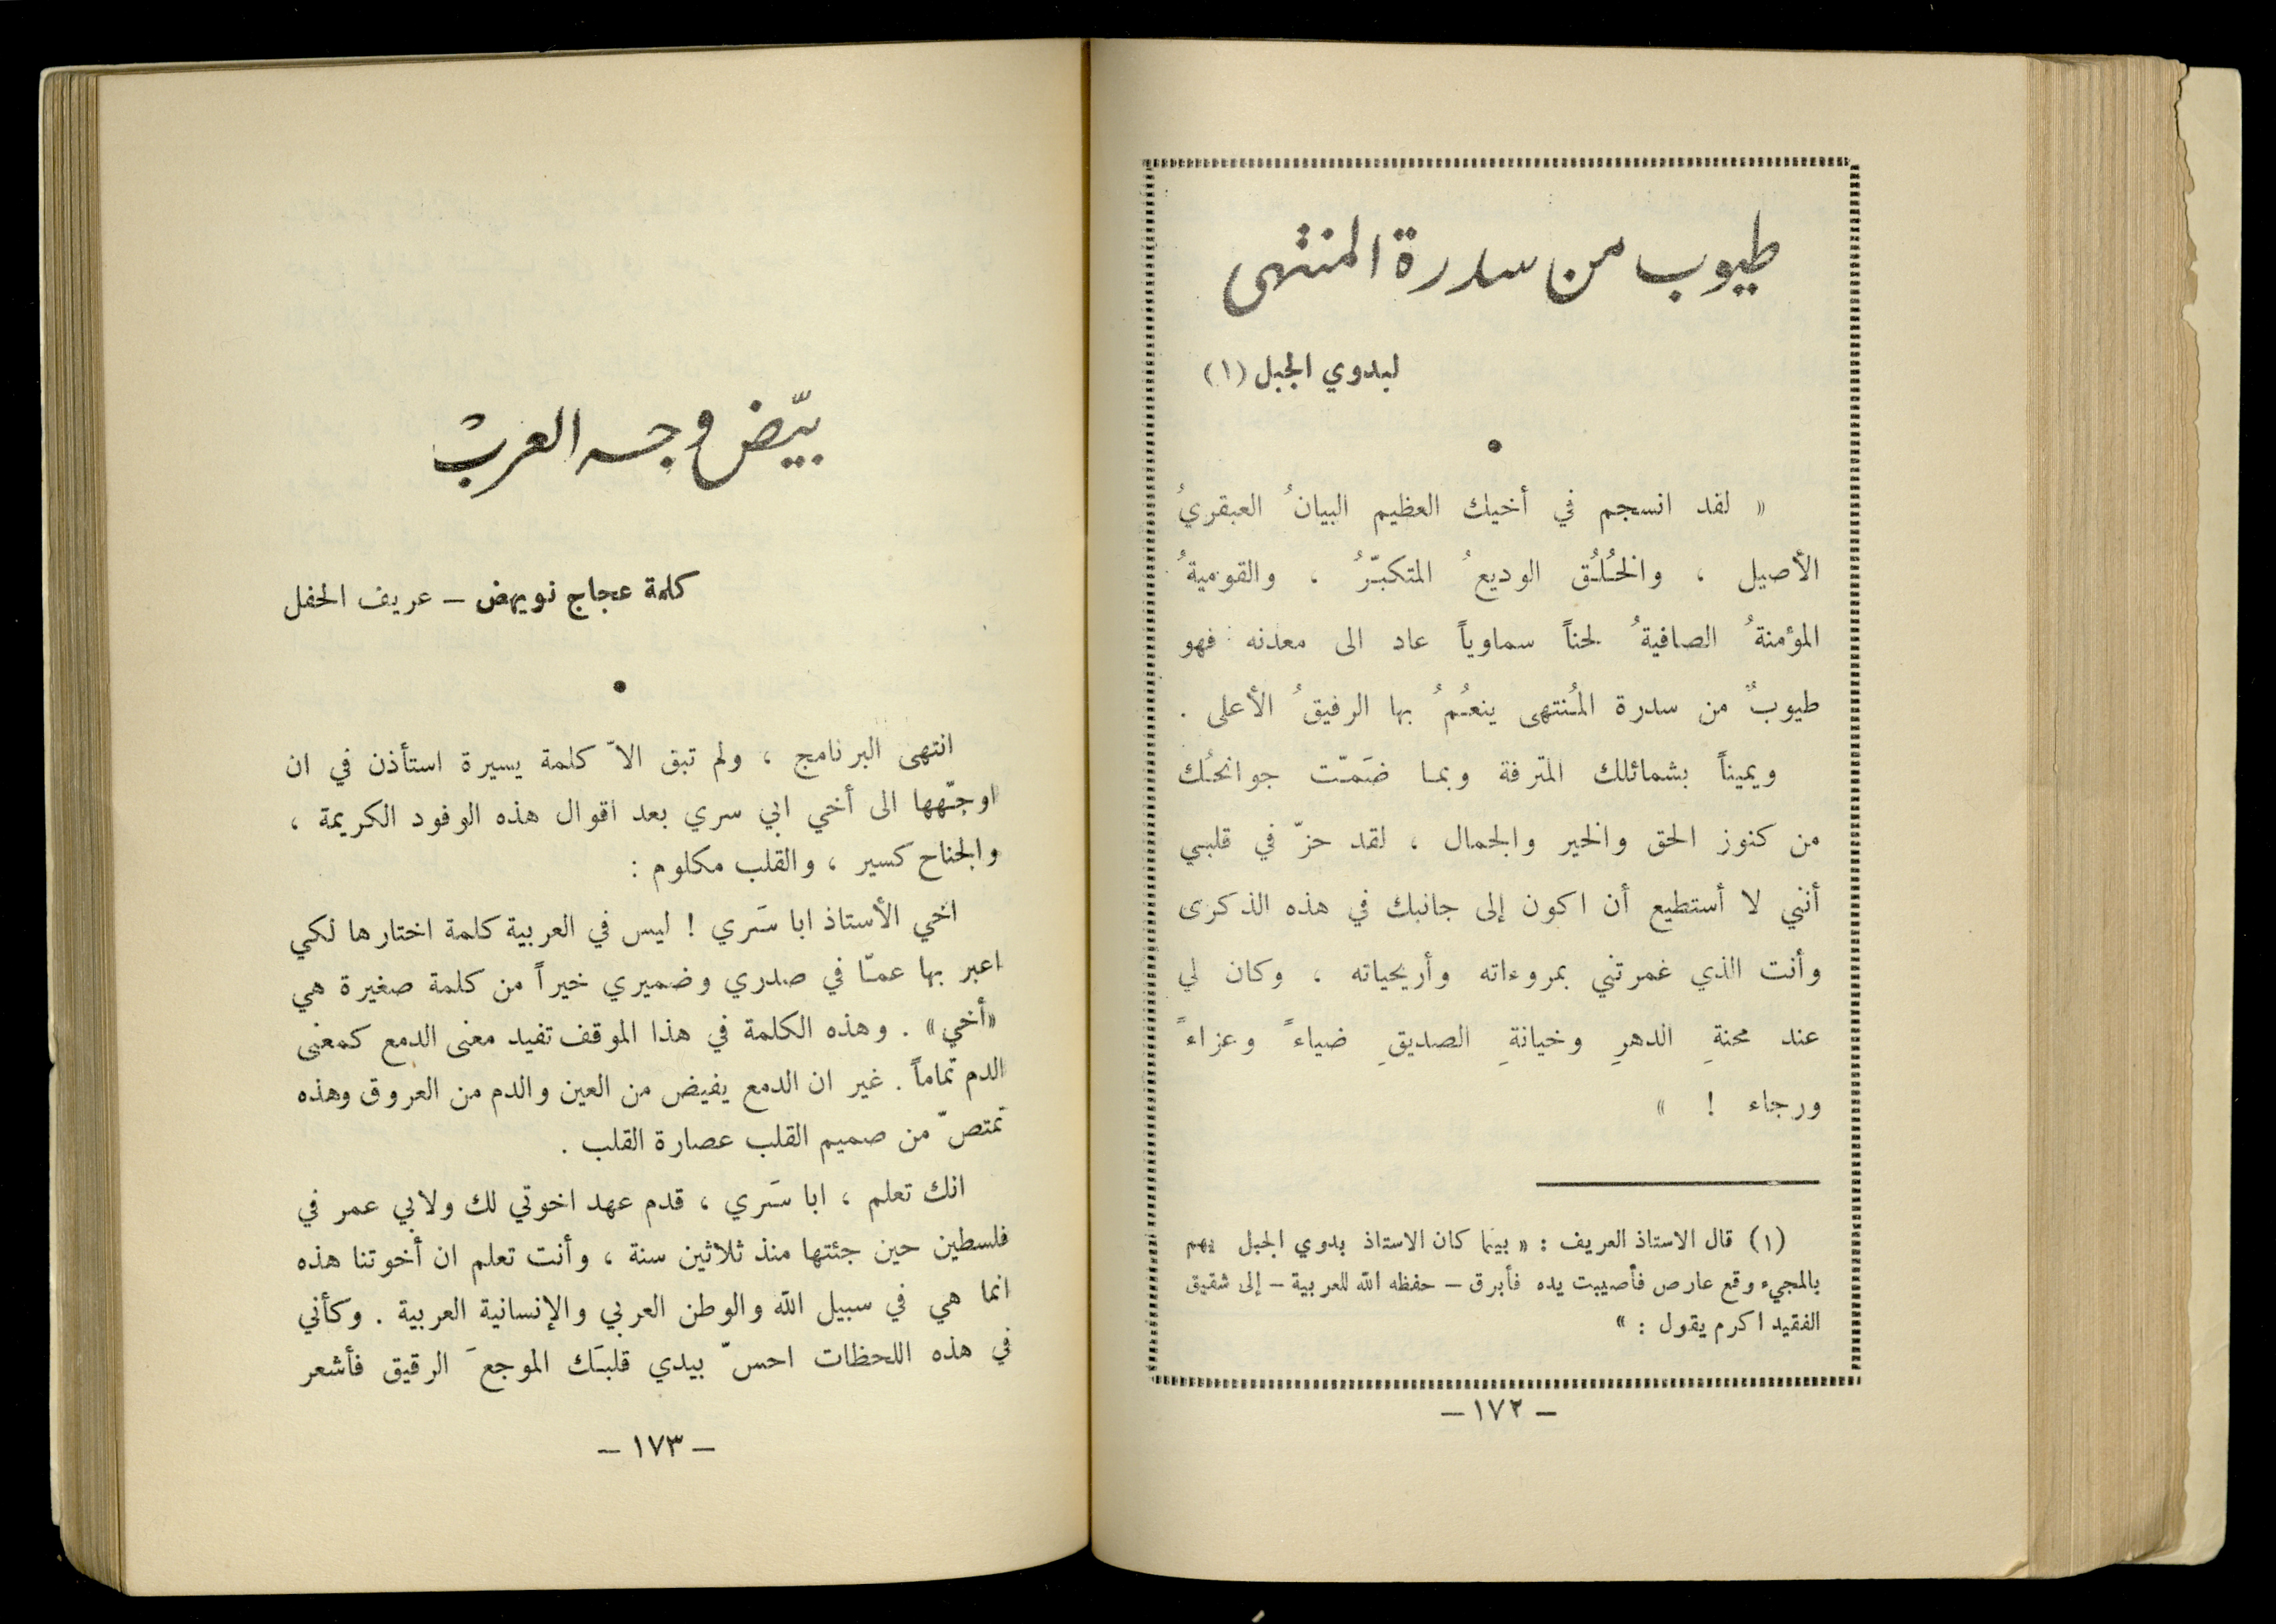 طيوب من سدرة المنتهى
لبدوي الجبل (١)
« لقد انسجم في أخيك العظيم البيانُ العبقريُ
الأصيل ، والخُلُق الوديعُ المتكبّرُ ، والقوميةُ
المؤمنةُ الصافيةُ لحناً سماوياً عاد الى معدنه فهو
طيوبٌ من سدرة المُنتهى ينعُمُ بها الرفيقُ الأعلى .
ويميناً بشمائلك المترفة وبما ضَمّت جوانحُك
من كنوز الحق والخير والجمال ، لقد حزّ في قلبي
أنني لا أستطيع أن اكون إلى جانبك في هذه الذكرى
وأنت الذي غمرتني بمروءاته وأريحياته ، وكان لي
عند محنةِ الدهرِ وخيانةِ الصديقِ ضياءً وعزاءً
ورجاء ! »
(١) قال الاستاذ العريف : « بينما كان الاستاذ بدوي الجبل يهم
بالمجيء وقع عارض فأصيبت يده فأبرق – حفظه الله للعربية – إلى شقيق
الفقيد اكرم يقول : »
– ١٧٢ –
بيّض وجه العرب
كلمة عجاج نويهض – عريف الحفل
انتهى البرنامج ، ولم تبق الاّ كلمة يسيرة استأذن في ان
اوجّهها الى أخي ابي سري بعد اقوال هذه الوفود الكريمة ،
والجناح كسير ، والقلب مكلوم :
اخي الأستاذ ابا سَري ! ليس في العربية كلمة اختارها لكي
اعبر بها عمّا في صدري وضميري خيراً من كلمة صغيرة هي
«أخي» . وهذه الكلمة في هذا الموقف تفيد معنى الدمع كمعنى
الدم تماماً . غير ان الدمع يفيض من العين والدم من العروق وهذه
تمتصّ من صميم القلب عصارة القلب .
انك تعلم ، ابا سَري ، قدم عهد اخوتي لك ولابي عمر في
فلسطين حين جئتها منذ ثلاثين سنة ، وأنت تعلم ان أخوتنا هذه
انما هي في سبيل الله والوطن العربي والإنسانية العربية . وكأني
في هذه اللحظات احسّ بيدي قلبَك الموجعَ الرقيق فأشعر
– ١٧٣ –